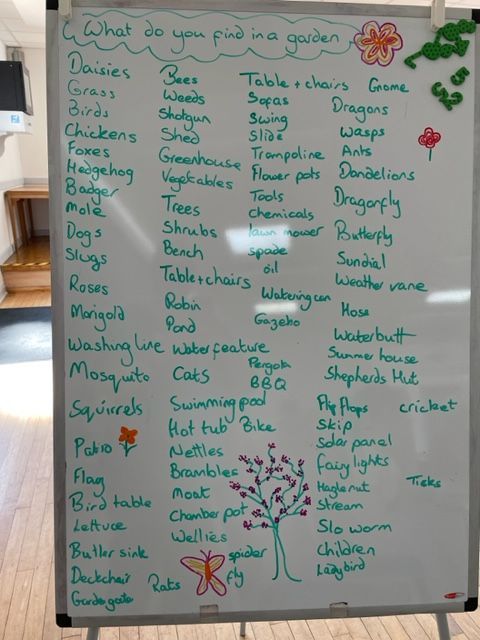 What do you find in a garden
Daisies
Grass
Birds
Chickens
Foxes
Hedgehog
Badger
Mole
Dogs
Slugs
Roses
Marigold
Washing line
Mosquito
Squirrels
Patio
Flag
Bird table
Lettuce
Butler sink
Deckchair
Garden gate
Bees
Weeds
Shotgun
Shed
Greenhouse
Vegetables
Trees
Shrubs
Bench
Table+chairs
Robin
Pond
Water feature
Cats
Swimming pool
Hot tub
Bike
Nettles
Brambles
Moat
Chamber pot
Wellies
Rats
spider
fly
Table + chairs
Sofas
Swing
Slide
Trampoline
Flower pots
Tools
Chemicals
lawn mower
spade
oil
Watering can
Gazebo
Pergola
BBQ
Gnome
Dragons
Wasps
Ants
Dandelions
Dragonfly
Butterfly
Sundial
Weather vane
Hose
Waterbutt
Summer house
Shepherds Hut
Flip flops
cricket
Skip
Solar panel
fairy lights
Hazlenut
Ticks
Stream
Slo worm
Children
Ladybird